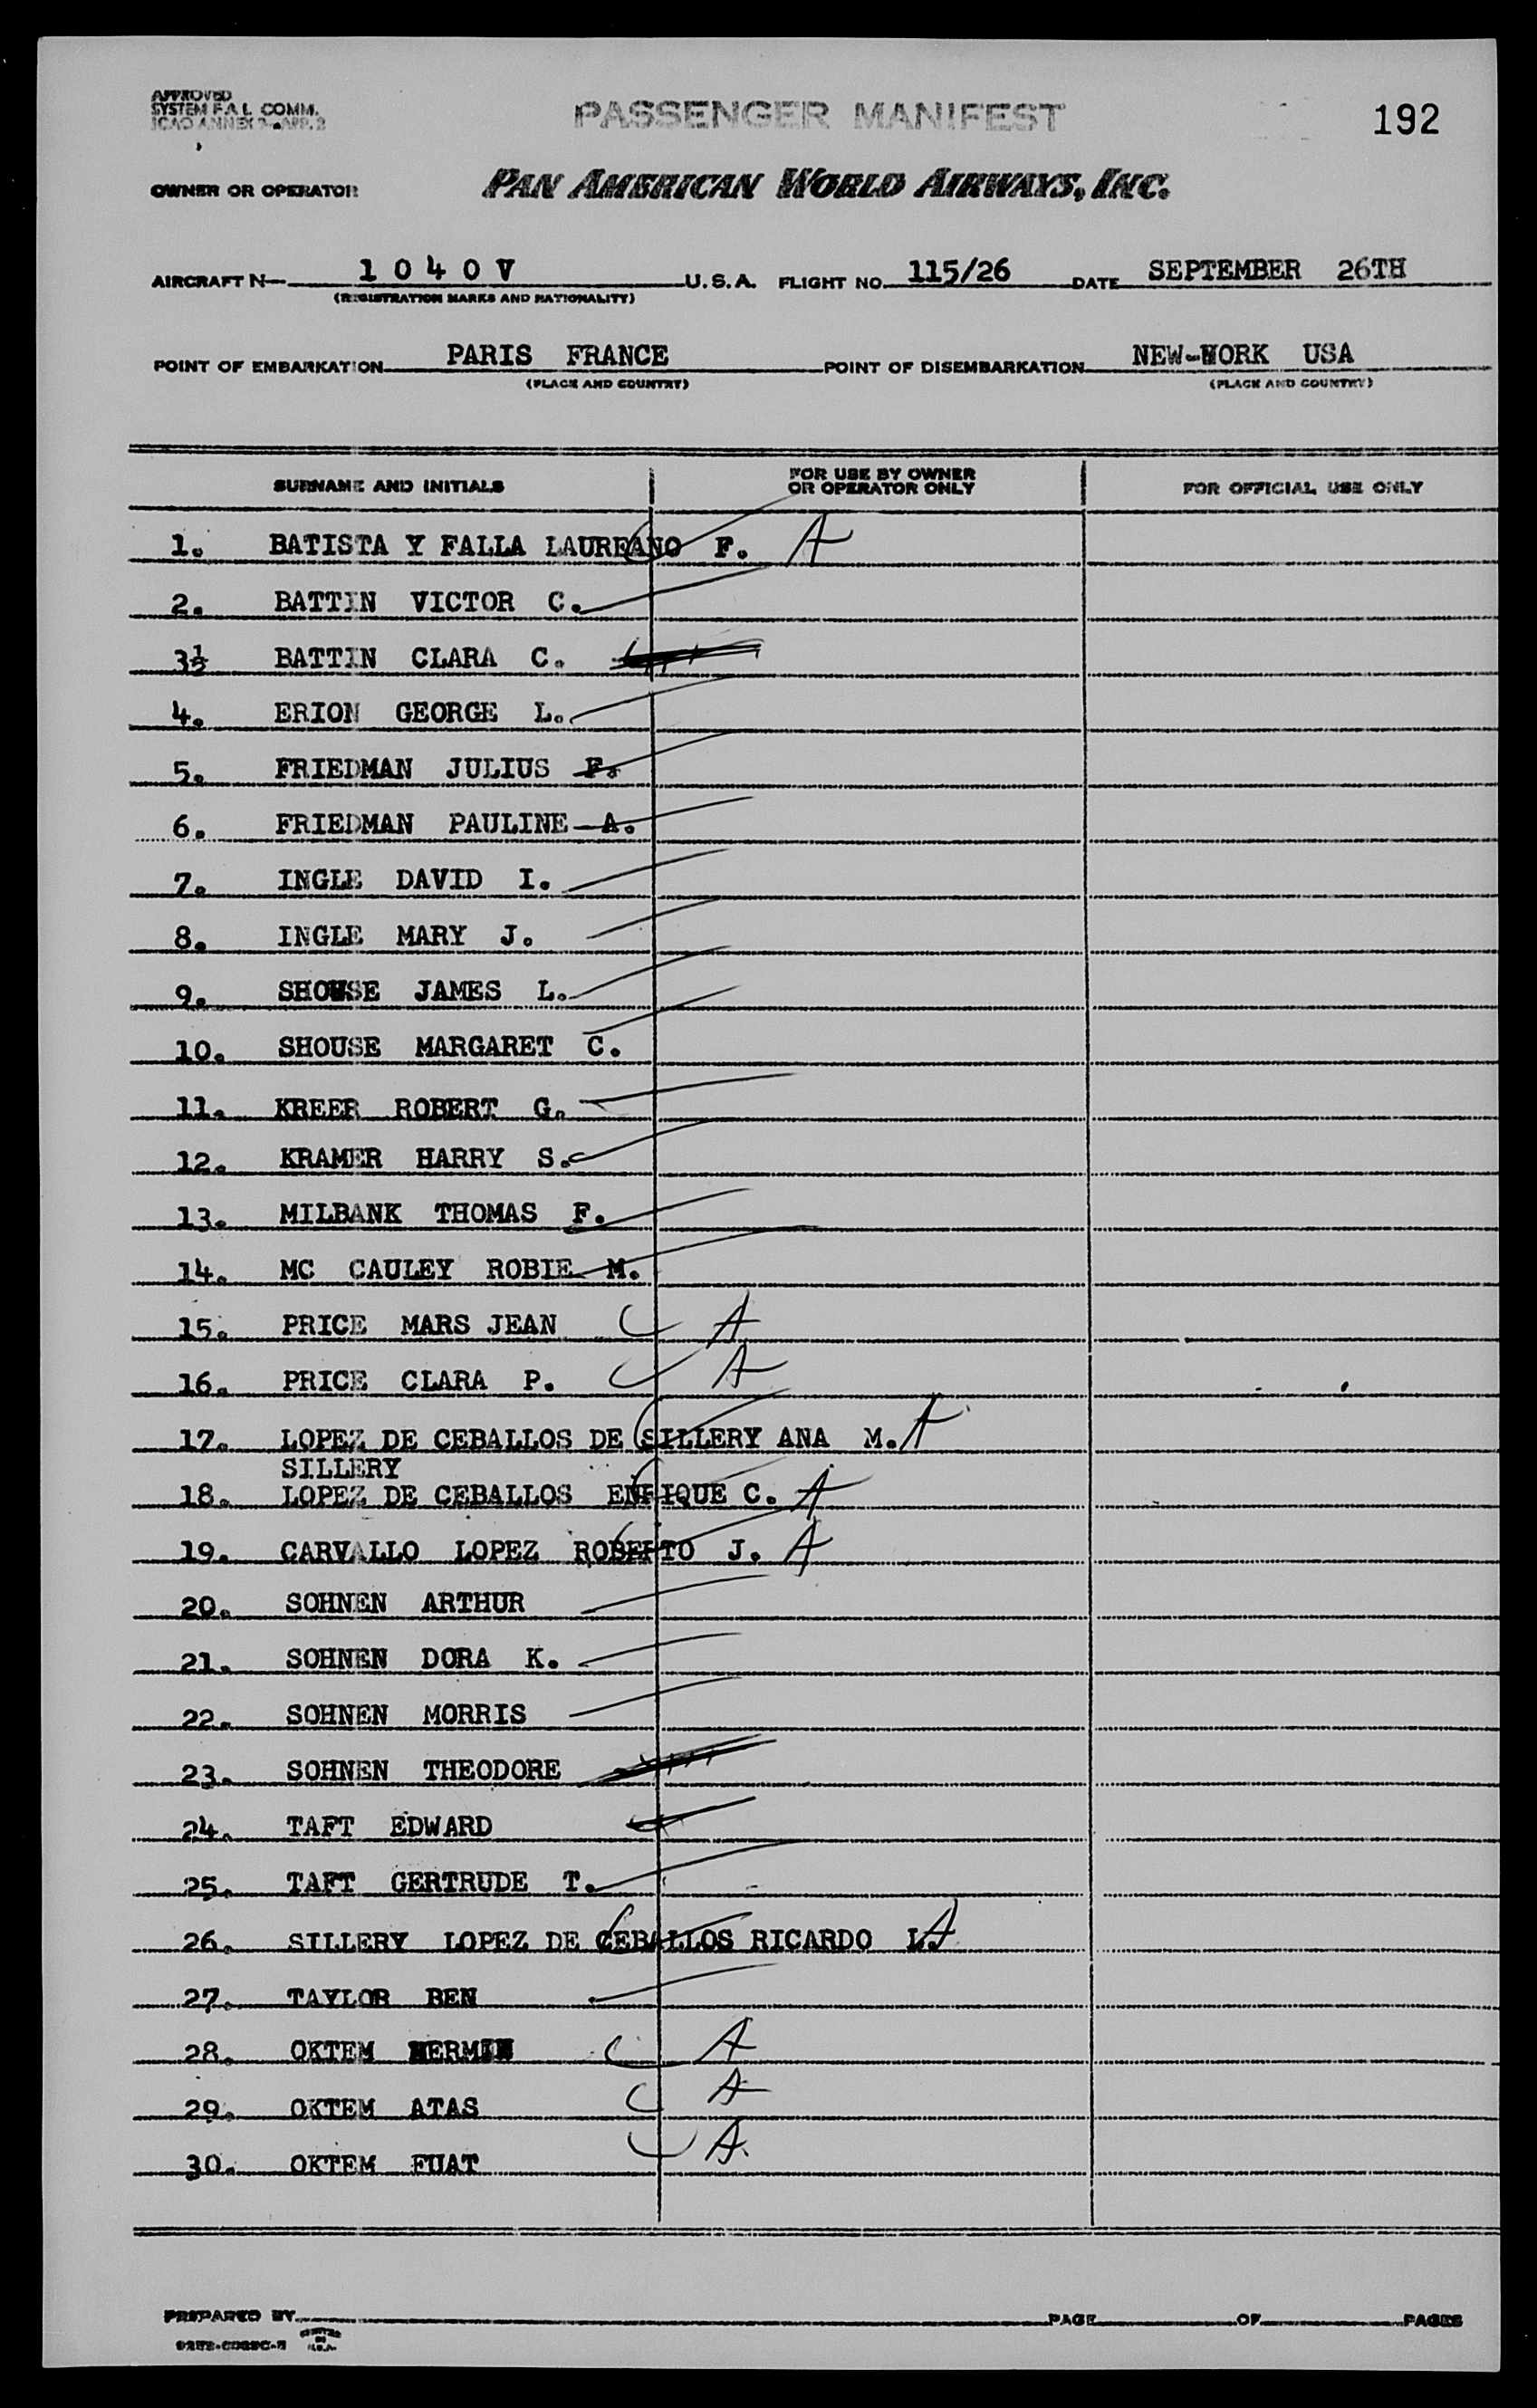 APPROVED
SYSTEM F.A.L. COMM.
ICAO ANNEX 9-APP. 2
PASSENGER MANIFEST
192
OWNER OR OPERATOR
PAN AMERICAN WORLD AIRWAYS, INC.
AIRCRAFT N— 1 0 4 0 V U.S.A. FLIGHT NO. 115/26 DATE SEPTEMBER 26TH
(REGISTRATION MARKS AND NATIONALITY)
POINT OF EMBARKATION PARIS FRANCE POINT OF DISEMBARKATION NEW-YORK USA
(PLACE AND COUNTRY) (PLACE AND COUNTRY)
SURNAME AND INITIALS FOR USE BY OWNER OR OPERATOR ONLY FOR OFFICIAL USE ONLY
1. BATISTA Y FALLA LAUREANO F. A
2. BATTIN VICTOR C.
3½ BATTIN CLARA C.
4. ERION GEORGE L.
5. FRIEDMAN JULIUS F.
6. FRIEDMAN PAULINE A.
7. INGLE DAVID I.
8. INGLE MARY J.
9. SHOUSE JAMES L.
10. SHOUSE MARGARET C.
11. KREER ROBERT G.
12. KRAMER HARRY S.
13. MILBANK THOMAS F.
14. MC CAULEY ROBIE M.
15. PRICE MARS JEAN A
16. PRICE CLARA P. A
17. LOPEZ DE CEBALLOS DE SILLERY ANA M. A
SILLERY
18. LOPEZ DE CEBALLOS ENRIQUE C. A
19. CARVALLO LOPEZ ROBERTO J. A
20. SOHNEN ARTHUR
21. SOHNEN DORA K.
22. SOHNEN MORRIS
23. SOHNEN THEODORE
24. TAFT EDWARD
25. TAFT GERTRUDE T.
26. SILLERY LOPEZ DE CEBALLOS RICARDO L. A
27. TAYLOR BEN
28. OKTEM NERMIN A
29. OKTEM ATAS A
30. OKTEM FUAT A.
PREPARED BY PAGE OF PAGES